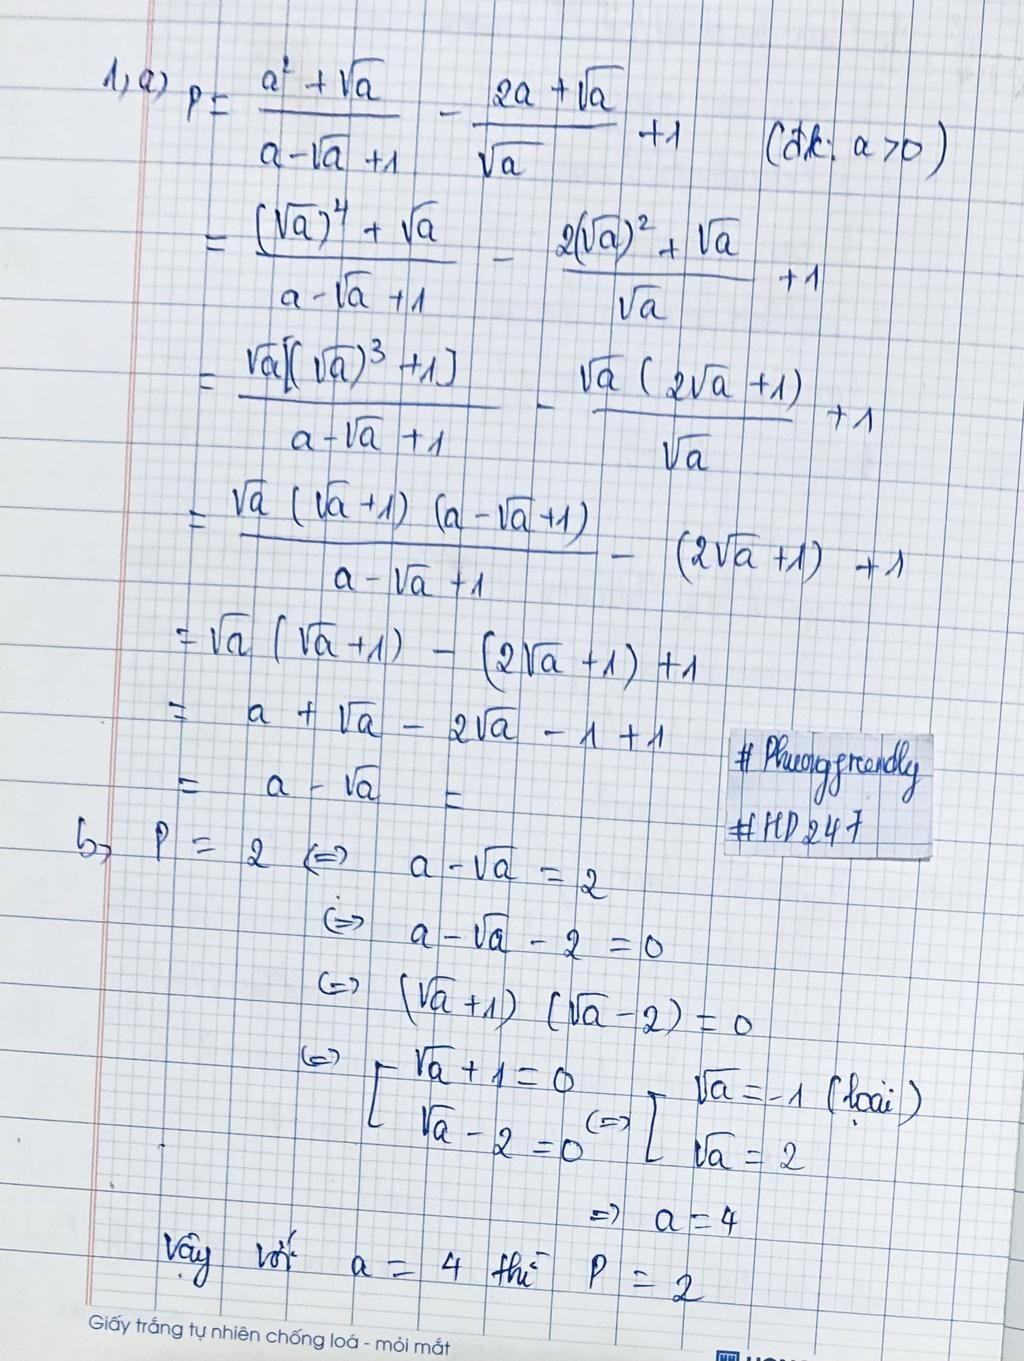 1, a) P = \frac{a² + √a}{a - √a + 1} - \frac{2a + √a}{√a} + 1 (đk: a > 0)
= \frac{(√a)⁴ + √a}{a - √a + 1} - \frac{2(√a)² + √a}{√a} + 1
= \frac{√a[(√a)³ + 1]}{a - √a + 1} - \frac{√a (2√a + 1)}{√a} + 1
= \frac{√a (√a + 1) (a - √a + 1)}{a - √a + 1} - (2√a + 1) + 1
= √a (√a + 1) - (2√a + 1) + 1
= a + √a - 2√a - 1 + 1
= a - √a =
# Phuonggreendly
#HD247
b, P = 2 (=) a - √a = 2
(=) a - √a - 2 = 0
(=) (√a + 1) (√a - 2) = 0
(=) [ √a + 1 = 0 (=) [ √a = -1 (loại)
√a - 2 = 0 √a = 2
=> a = 4
Vậy với a = 4 thì P = 2
Giấy trắng tự nhiên chống loá - mỏi mắt